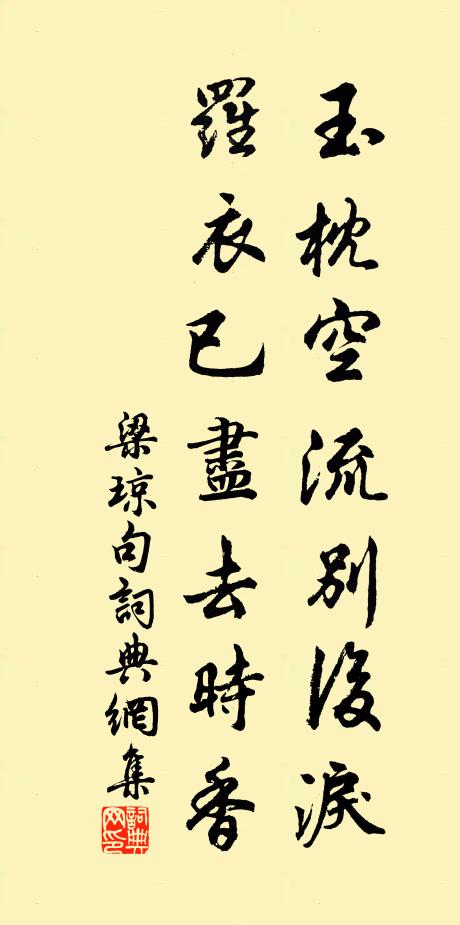 玉枕空流別後淚
羅衣已盡去時香
梁琼句詞典網集
詞典网印